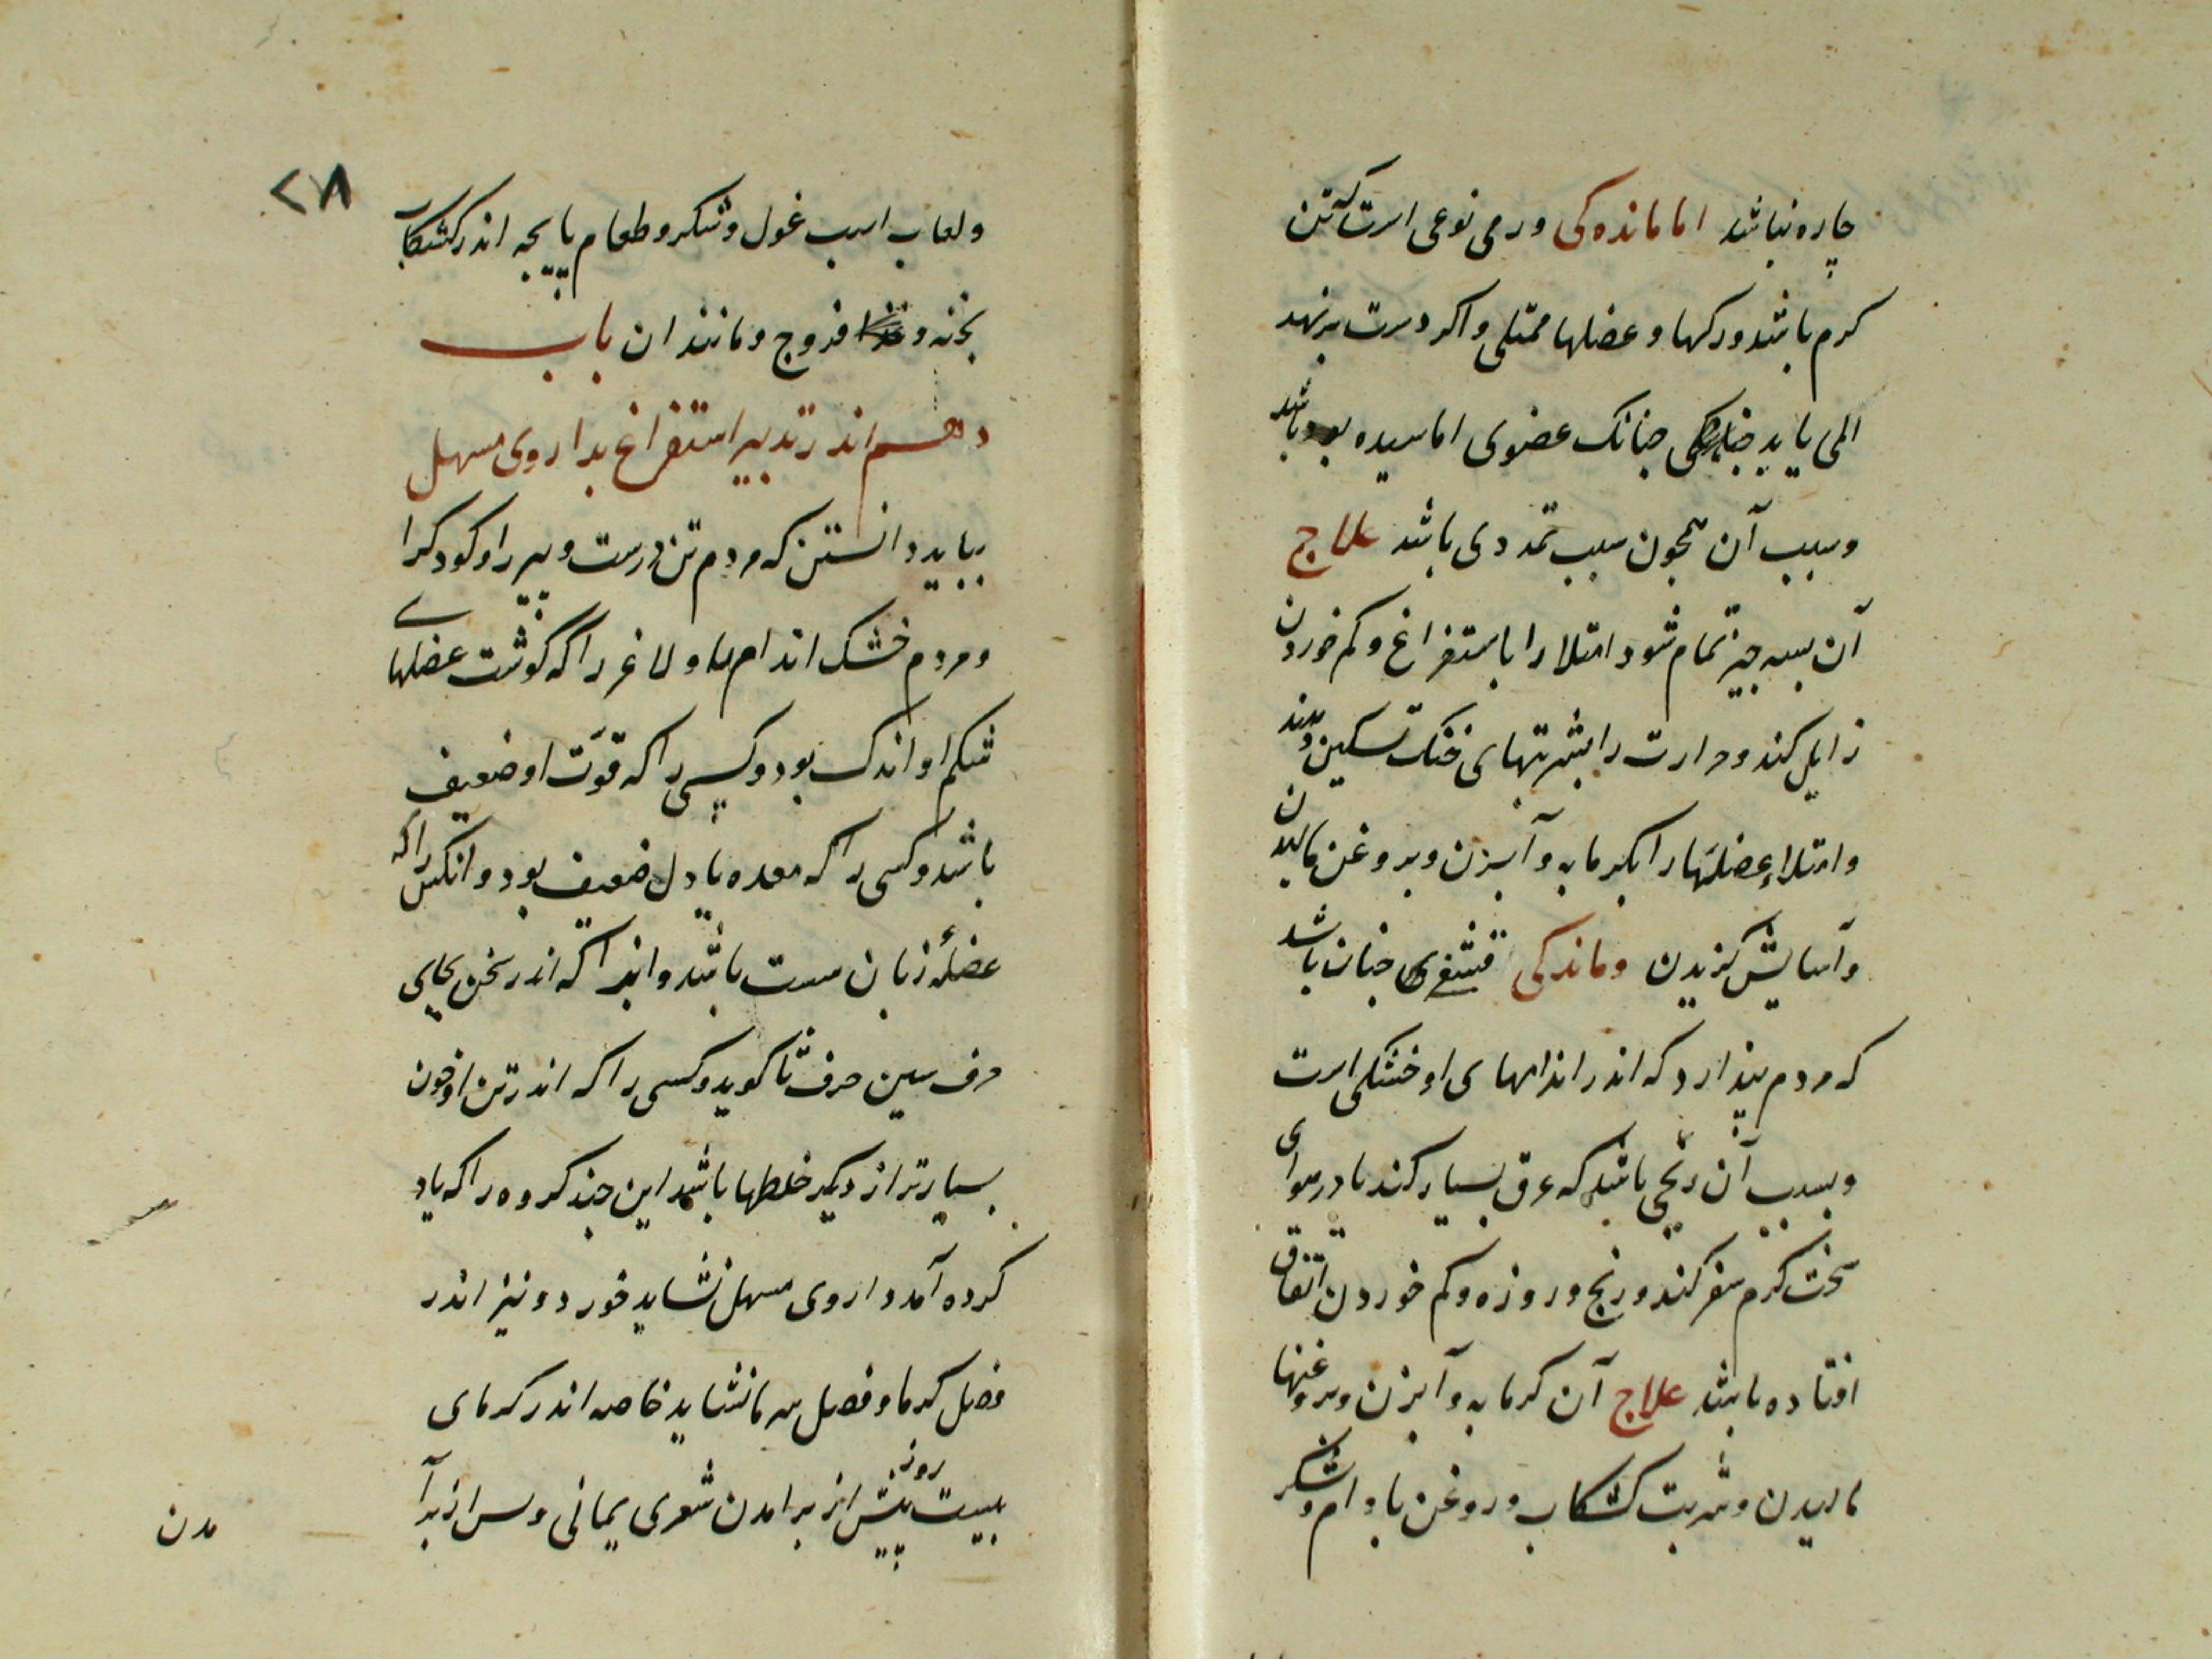 چاره نباشد اما مانده کی ورمی نوعی است که تن
کرم باشد و رکها و عضلها ممتلی و اکر دست برنهد
المی یابد جنانک عضوی اماسیده باشد
وسبب آن همجون سبب تمددی باشد علاج
آن بسه جیز تمام شود امتلا را باستفراغ و کم خوردن
زایل کند وحرارت را بشربتهای خنک تسکین دهند
وامتلاء عضلها را بکرمابه و آبزن و بروغن مالیدن
وآسایش کزیدن وماندکی قشفی جنان باشد
که مردم پندارد که اندر اندامهای او خشکی است
وسبب آن رنجی باشد که عرق بسیار کند یا در هوای
سخت کرم سفر کند ورنج وروزه وکم خوردن اتفاق
افتاده باشد علاج آن کرمابه و آبزن وبروغنها
مالیدن وشربت کشکاب و روغن بادام وشکر
۲۸
ولعاب اسب غول وشکر وطعام پایجه اندر کشکاب
بخته و فروج ومانند ان باب
دهم اندر تدبیر استفراغ بداروی مسهل
بباید دانستن که مردم تن درست وپیر را و کودک را
ومردم خشک اندام را ولاغر را که گوشت عضلهای
شکم او اندک بود وکسی را که قوت او ضعیف
باشد وکسی را که معده یا دل ضعیف بود وانکس را که
عضله زبان سست باشد وانرا که اندر سخن بجای
حرف سین حرف ثا کوید وکسی را که اندر تن او خون
بسیارتر از دیکر خلطها باشد این جند کروه را که یاد
کرده آمد داروی مسهل نشاید خورد ونیز اندر
فصل کرما وفصل سرما نشاید خاصه اندر کرمای
بیست روز پیش از برامدن شعری یمانی وپس از برآ
مدن